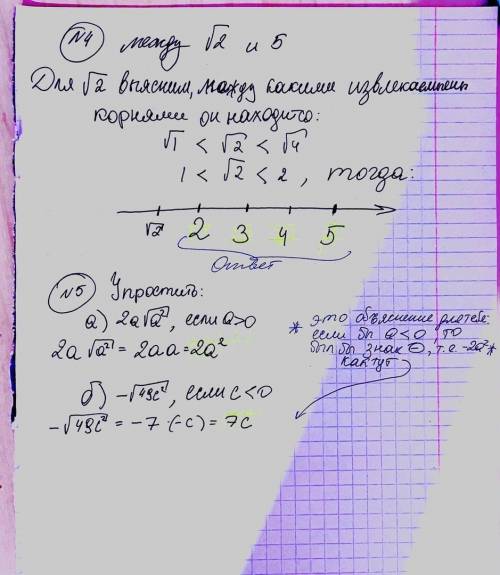 №4 между √2 и 5
Для √2 выясним, между какими извлекаемыми
корнями он находится:
√1 < √2 < √4
1 < √2 < 2, тогда:
√2 2 3 4 5
ответ
№5 Упростить:
а) 2a√a², если a>0
2a√a² = 2aa = 2a²
* это объяснение для тебя:
если бы a<0, то
был бы знак ⊖, т.е. -2a² *
как тут
б) -√49c², если c<0
-√49c² = -7·(-c) = 7c